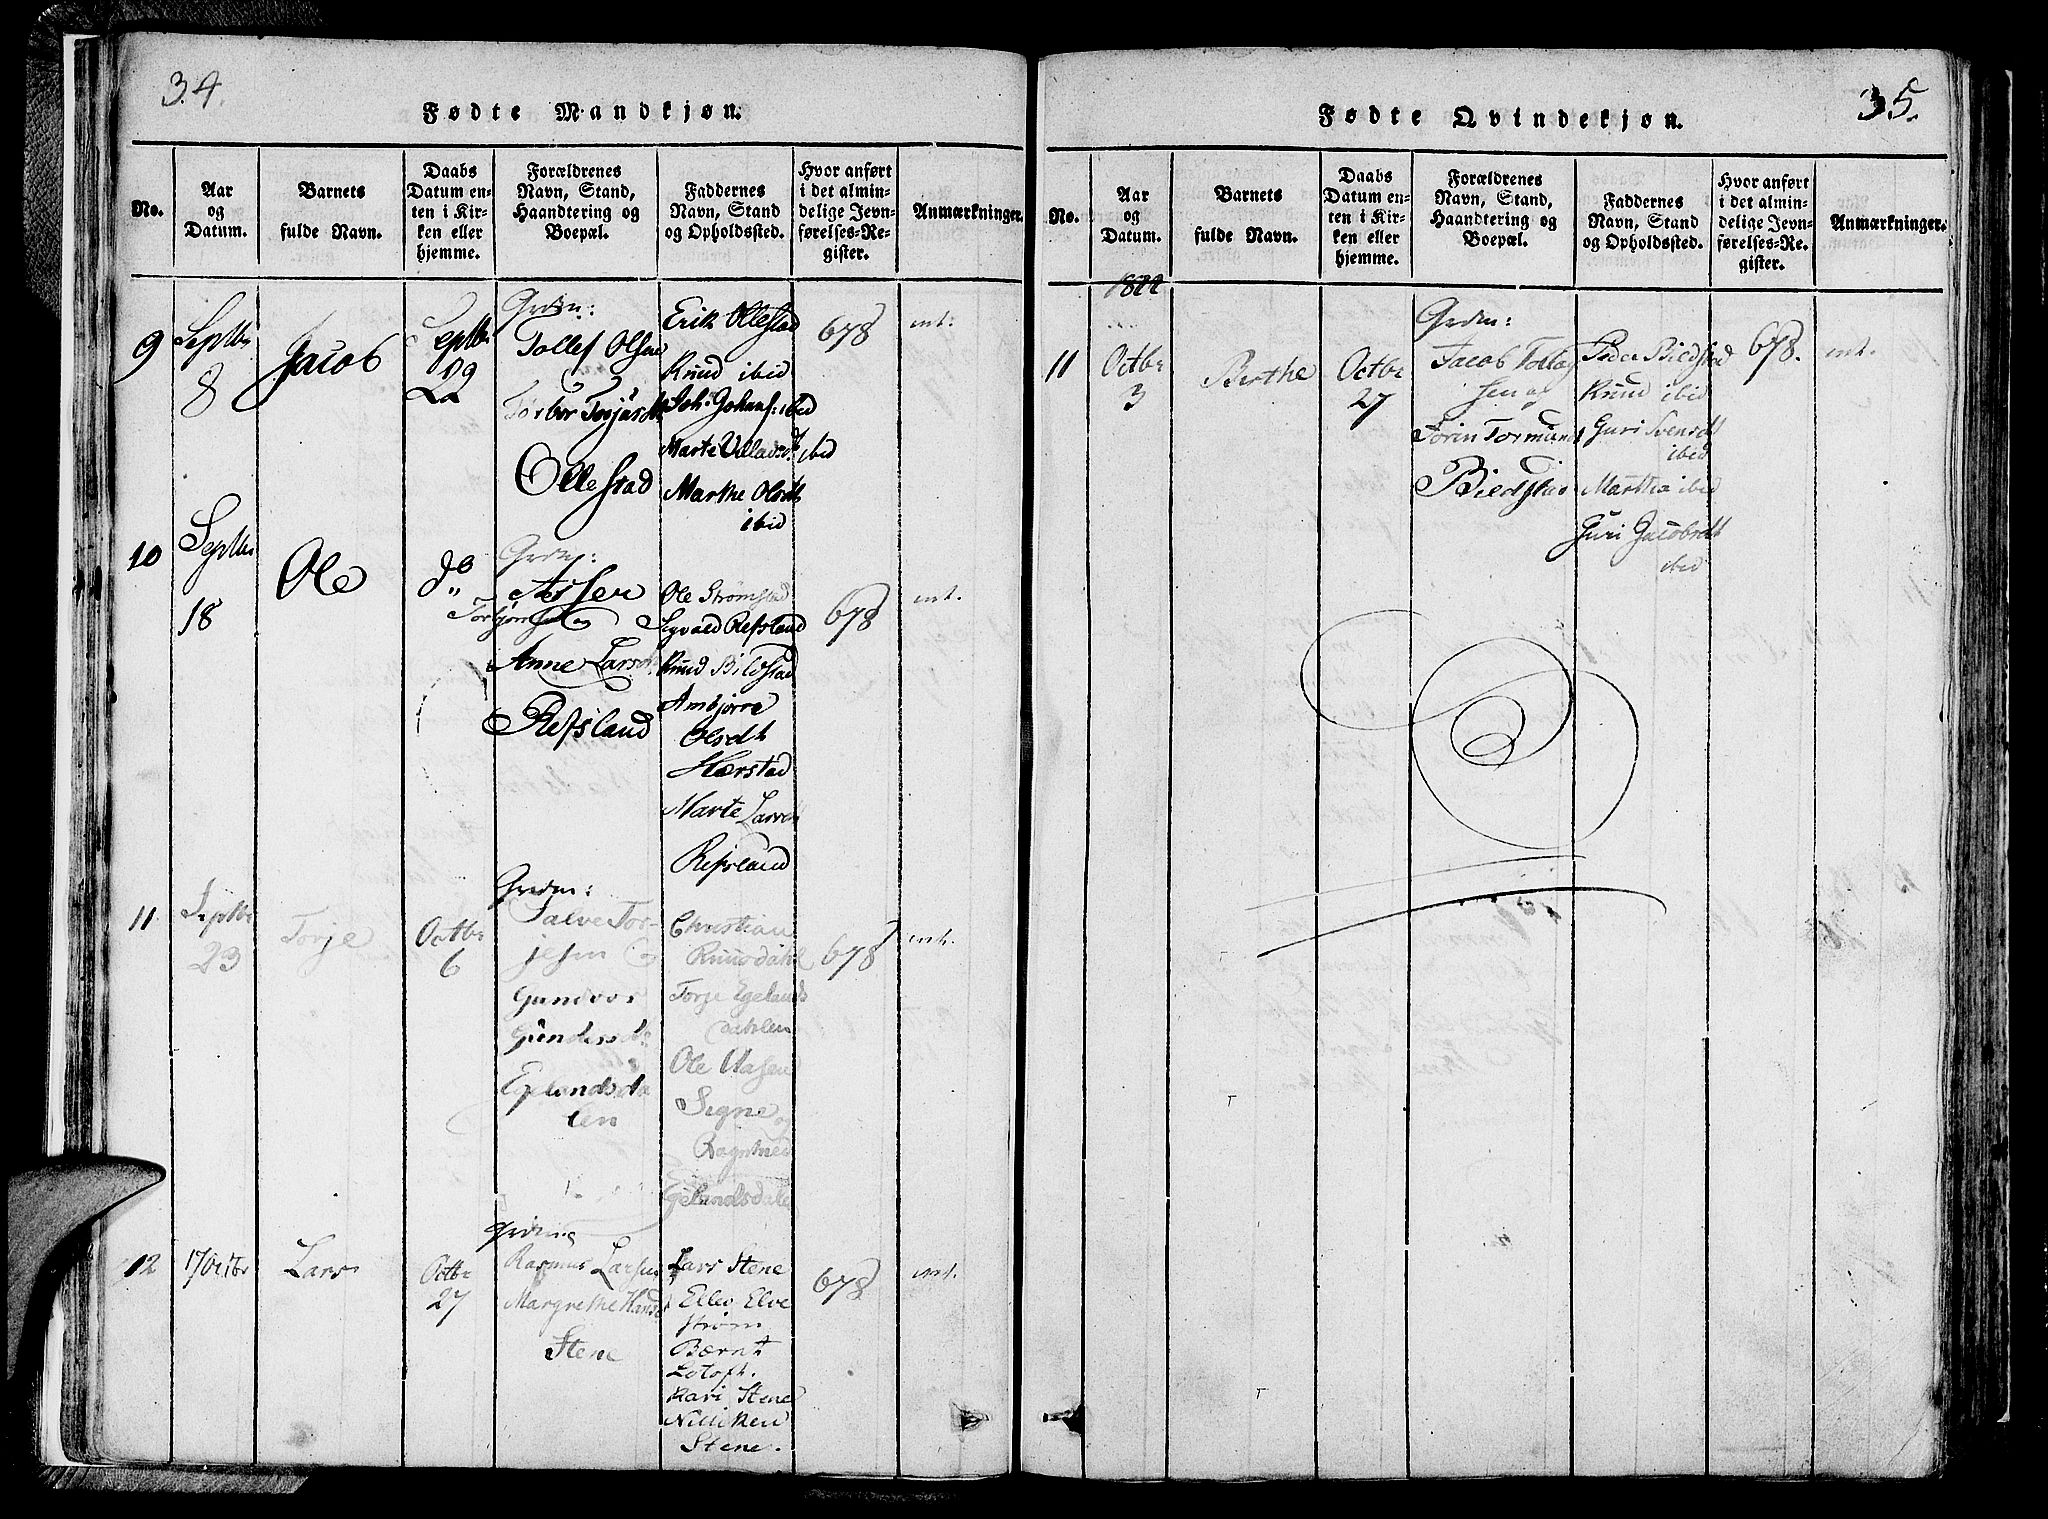 34.
Fødte Mandkjøn.
No.
Aar
og
Datum.
Barnets
fulde Navn.
Daabs
Datum en-
ten i Kir-
ken eller
hjemme.
Forældrenes
Navn, Stand,
Haandtering og
Boepæl.
Faddernes
Navn, Stand
og Opholdssted.
Hvor anført
i det almin-
delige Jevn-
førelses-Re-
gister.
Anmærkninger.
9
Septbr
8
Jacob
Septbr
22
Grdm:
Tollef Olsen
Ollestad
Erik Ollestad
Knud ibid
Joh. Johans: ibid
Marte Villadsdt ibid
Marthe Olsdt
ibid
678
int:
10
Septbr
18
Ole
do
Grdm:
Asser
Torbjørnsen
Anne Larsdt
Refsland
Ole Strømstad
Sigvald Refsland
Knud Bildstad
Ambjørre
Olsdt
Hærstad
Marte Larsdt
Refsland
678
int.
11
Septbr
23
Torje
Octbr
6
Grdm:
Salve Tor-
jesen
Gundvor
Gundersdt
Egelandsda
len
Christian
Knusdahl
Torje Egelands
dahlen
Ole Aasen
Signe og
Ragnhild
Egelandsdalen
678
int.
12
17 Octbr
Lars
Octbr
27
Grdm:
Rasmus Larsen
Margrethe Hansd
Stene
Lars Stene
Ellev Elve
strøm
Bærnt
Lotoft.
Kari Stene
Nilliken
Stene.
678
int.
35.
Fødte Qvindekjøn.
No.
Aar
og
Datum.
Barnets
fulde Navn.
Daabs
Datum en-
ten i Kir-
ken eller
hjemme.
Forældrenes
Navn, Stand,
Haandtering og
Boepæl.
Faddernes
Navn, Stand
og Opholdssted.
Hvor anført
i det almin-
delige Jevn-
førelses-Re-
gister.
Anmærkninger.
1822
11
Octbr
3
Berthe
Octbr
27
Grdm:
Jacob Tollag
sen og
Torin Tormundt
Bildstad
Peder Bildstad
Knud ibid
Guri Svensdt
ibid
Martha ibid
Guri Jacobsdt
ibid
678.
int.